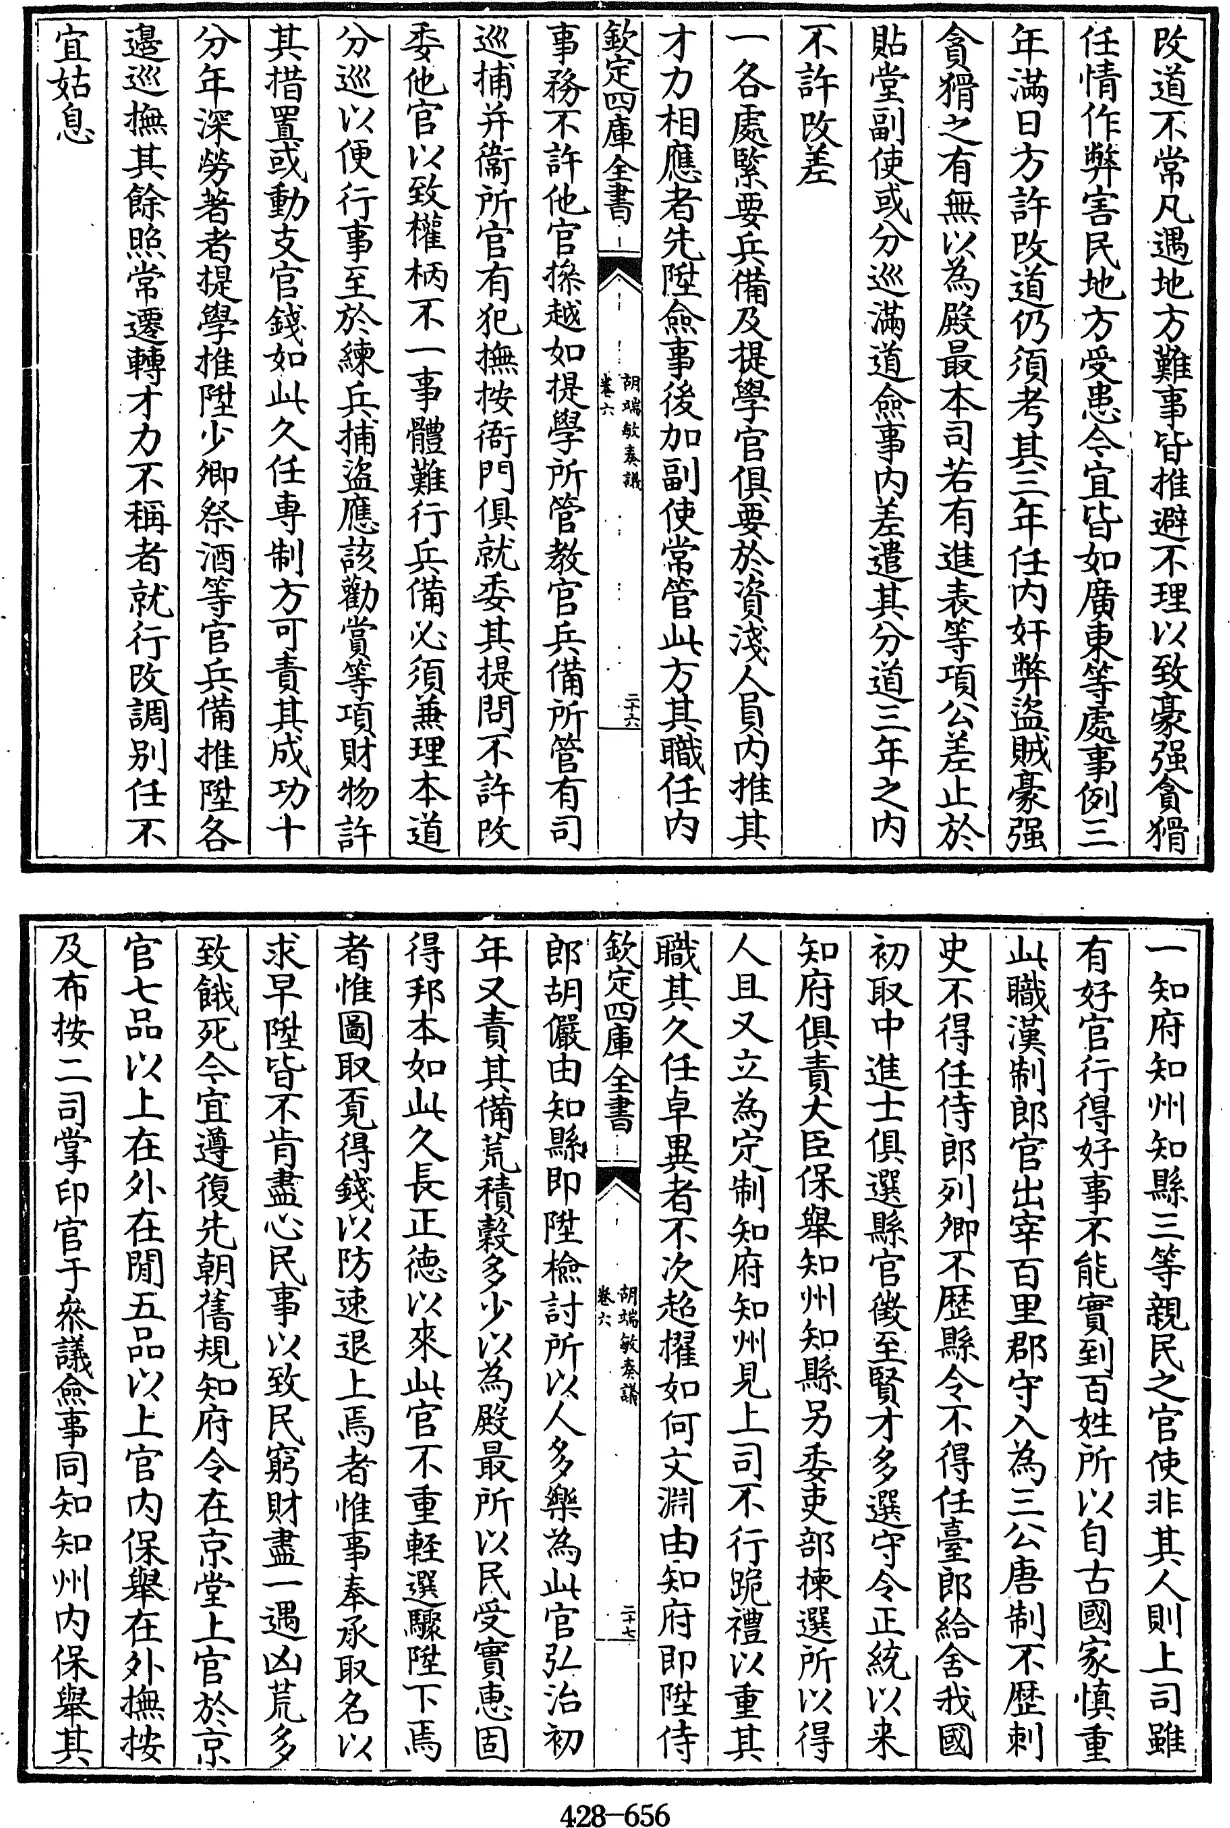 改道不常凡遇地方難事皆推避不理以致豪强貪猾
任情作弊害民地方受患今宜皆如廣東等處事例三
年滿日方許改道仍須考其三年任内奸弊盜賊豪强
貪猾之有無以為殿最本司若有進表等項公差止於
貼堂副使或分巡滿道僉事内差遣其分道三年之内
不許改差
一各處緊要兵備及提學官俱要於資淺人員内推其
才力相應者先陞僉事後加副使常管此方其職任内
欽定四庫全書
胡端敏奏議
卷六
二十六
事務不許他官攙越如提學所管教官兵備所管有司
巡捕并衞所官有犯撫按衙門俱就委其提問不許改
委他官以致權柄不一事體難行兵備必須兼理本道
分巡以便行事至於練兵捕盜應該勸賞等項財物許
其措置或動支官錢如此久任專制方可責其成功十
分年深勞著者提學推陞少卿祭酒等官兵備推陞各
邊巡撫其餘照常遷轉才力不稱者就行改調别任不
宜姑息
一知府知州知縣三等親民之官使非其人則上司雖
有好官行得好事不能實到百姓所以自古國家慎重
此職漢制郎官出宰百里郡守入為三公唐制不歴刺
史不得任侍郎列卿不歴縣令不得任臺郎給舍我國
初取中進士俱選縣官徵至賢才多選守令正統以来
知府俱責大臣保舉知州知縣另委吏部揀選所以得
人且又立為定制知府知州見上司不行跪禮以重其
職其久任卓異者不次超擢如何文淵由知府即陞侍
欽定四庫全書
胡端敏奏議
卷六
二十七
郎胡儼由知縣即陞檢討所以人多樂為此官弘治初
年又責其備荒積穀多少以為殿最所以民受實惠固
得邦本如此久長正德以來此官不重輕選驟陞下焉
者惟圖取覔得錢以防速退上焉者惟事奉承取名以
求早陞皆不肯盡心民事以致民窮財盡一遇凶荒多
致餓死今宜遵復先朝舊規知府令在京堂上官於京
官七品以上在外在閒五品以上官内保舉在外撫按
及布按二司掌印官于叅議僉事同知知州内保舉其
428-656